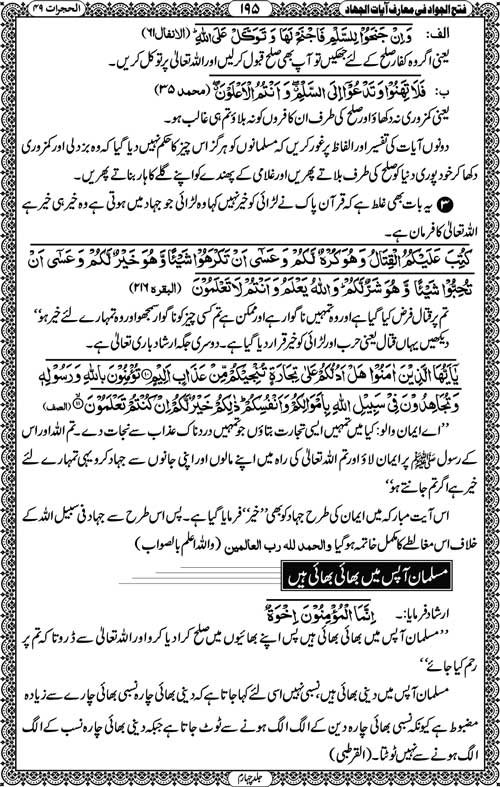 الحجرات ۴۹
۱۹۵
فتح الجواد فی معارف آیات الجهاد
الف: وَاِنْ جَنَحُوْا لِلسَّلْمِ فَاجْنَحْ لَهَا وَ تَوَكَّلْ عَلَى اللّٰهِ (الانفال ۶۱)
یعنی اگر وہ کفار صلح کے لئے جھکیں تو آپ بھی صلح قبول کر لیں اور اللہ تعالیٰ پر توکل کریں۔
ب: فَلَا تَهِنُوْا وَ تَدْعُوْٓا اِلَى السَّلْمِ وَ اَنْتُمُ الْاَعْلَوْنَ (محمد ۳۵)
یعنی کمزوری نہ دکھاؤ اور صلح کی طرف ان کافروں کو نہ بلاؤ تم ہی غالب ہو۔
دونوں آیات کی تفسیر اور الفاظ پر غور کریں کہ مسلمانوں کو ہرگز اس چیز کا حکم نہیں دیا گیا کہ وہ بزدلی اور کمزوری
دکھا کر خود پوری دنیا کو صلح کی طرف بلاتے پھریں اور غلامی کے پھندے کو اپنے گلے کا ہار بناتے پھریں۔
۳ یہ بات بھی غلط ہے کہ قرآن پاک نے لڑائی کو خیر نہیں کہا وہ لڑائی جو جہاد میں ہوتی ہے وہ خیر ہی خیر ہے
اللہ تعالیٰ کا فرمان ہے۔
كُتِبَ عَلَيْكُمُ الْقِتَالُ وَ هُوَ كُرْهٌ لَّكُمْ وَ عَسٰٓى اَنْ تَكْرَهُوْا شَيْـًٔا وَّ هُوَ خَيْرٌ لَّكُمْ وَ عَسٰٓى اَنْ
تُحِبُّوْا شَيْـًٔا وَّ هُوَ شَرٌّ لَّكُمْ وَ اللّٰهُ يَعْلَمُ وَ اَنْتُمْ لَا تَعْلَمُوْنَ (البقرہ ۲۱۶)
تم پر قتال فرض کیا گیا ہے اور وہ تمہیں ناگوار ہے اور ممکن ہے تم کسی چیز کو ناگوار سمجھو اور وہ تمہارے لئے خیر ہو‘‘
دیکھیں یہاں قتال یعنی حرب اور لڑائی کو خیر قرار دیا گیا ہے۔ دوسری جگہ ارشاد باری تعالیٰ ہے۔
يٰٓاَيُّهَا الَّذِيْنَ اٰمَنُوْا هَلْ اَدُلُّكُمْ عَلٰى تِجَارَةٍ تُنْجِيْكُمْ مِّنْ عَذَابٍ اَلِيْمٍ تُؤْمِنُوْنَ بِاللّٰهِ وَ رَسُوْلِهٖ
وَ تُجَاهِدُوْنَ فِيْ سَبِيْلِ اللّٰهِ بِاَمْوَالِكُمْ وَ اَنْفُسِكُمْ ذٰلِكُمْ خَيْرٌ لَّكُمْ اِنْ كُنْتُمْ تَعْلَمُوْنَ (الصف)
’’اے ایمان والو: کیا میں تمہیں ایسی تجارت بتاؤں جو تمہیں دردناک عذاب سے نجات دے۔ تم اللہ اور اس
کے رسول ﷺ پر ایمان لاؤ اور تم اللہ تعالیٰ کی راہ میں اپنے مالوں اور اپنی جانوں سے جہاد کرو یہی تمہارے لئے
خیر ہے اگر تم جانتے ہو‘‘
اس آیت مبارکہ میں ایمان کی طرح جہاد کو بھی ’’خیر‘‘ فرمایا گیا ہے۔ پس اس طرح سے جہاد فی سبیل اللہ کے
خلاف اس مغالطے کا مکمل خاتمہ ہوگیا والحمد لله رب العالمین (واللہ اعلم بالصواب)
مسلمان آپس میں بھائی بھائی ہیں
ارشاد فرمایا:۔ اِنَّمَا الْمُؤْمِنُوْنَ اِخْوَةٌ
’’مسلمان آپس میں بھائی بھائی ہیں پس اپنے بھائیوں میں صلح کرا دیا کرو اور اللہ تعالیٰ سے ڈرو تا کہ تم پر
رحم کیا جائے‘‘
مسلمان آپس میں دینی بھائی ہیں، نسبی نہیں اسی لئے کہا جاتا ہے کہ دینی بھائی چارہ نسبی بھائی چارے سے زیادہ
مضبوط ہے کیونکہ نسبی بھائی چارہ دین کے الگ الگ ہونے سے ٹوٹ جاتا ہے جبکہ دینی بھائی چارہ نسب کے الگ
الگ ہونے سے نہیں ٹوٹتا۔ (القرطبی)
جلد چہارم